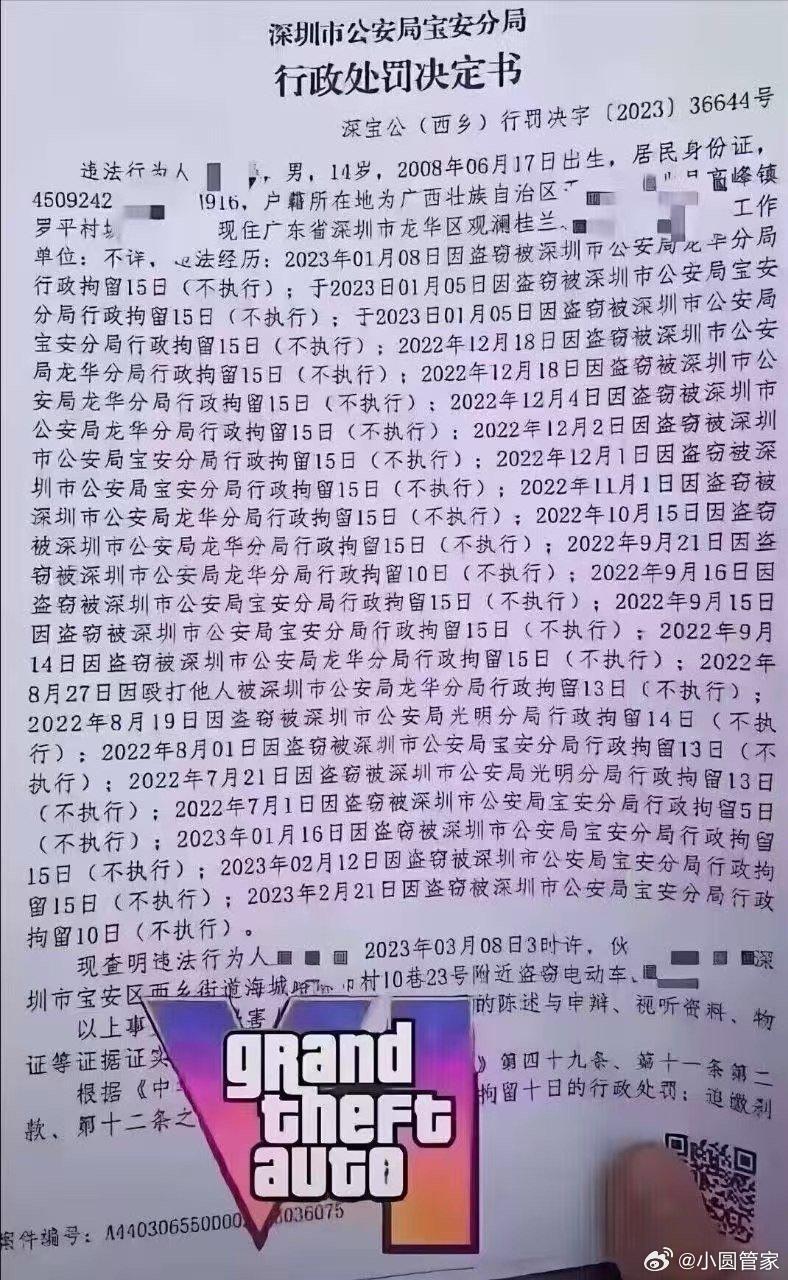 深圳市公安局宝安分局
行政处罚决定书
深宝公（西乡）行罚决字〔2023〕36644号
违法行为人 ，男，14岁，2008年06月17日出生，居民身份证，
4509242 1916，户籍所在地为广西壮族自治区 高峰镇
罗平村 现住广东省深圳市龙华区观澜桂兰 工作
单位：不详，违法经历：2023年01月08日因盗窃被深圳市公安局龙华分局
行政拘留15日（不执行）；于2023日01月05日因盗窃被深圳市公安局宝安
分局行政拘留15日（不执行）；于2023日01月05日因盗窃被深圳市公安局
宝安分局行政拘留15日（不执行）；2022年12月18日因盗窃被深圳市公安
局龙华分局行政拘留15日（不执行）；2022年12月18日因盗窃被深圳市公
安局龙华分局行政拘留15日（不执行）；2022年12月4日因盗窃被深圳市
公安局龙华分局行政拘留15日（不执行）；2022年12月2日因盗窃被深圳
市公安局宝安分局行政拘留15日（不执行）；2022年12月1日因盗窃被深
圳市公安局宝安分局行政拘留15日（不执行）；2022年11月1日因盗窃被
深圳市公安局龙华分局行政拘留15日（不执行）；2022年10月15日因盗窃
被深圳市公安局龙华分局行政拘留15日（不执行）；2022年9月21日因盗
窃被深圳市公安局龙华分局行政拘留10日（不执行）；2022年9月16日因
盗窃被深圳市公安局宝安分局行政拘留15日（不执行）；2022年9月15日
因盗窃被深圳市公安局宝安分局行政拘留15日（不执行）；2022年9月
14日因盗窃被深圳市公安局龙华分局行政拘留15日（不执行）；2022年
8月27日因殴打他人被深圳市公安局龙华分局行政拘留13日（不执行）；
2022年8月19日因盗窃被深圳市公安局光明分局行政拘留14日（不执
行）；2022年8月01日因盗窃被深圳市公安局宝安分局行政拘留13日（不
执行）；2022年7月21日因盗窃被深圳市公安局光明分局行政拘留13日
（不执行）；2022年7月1日因盗窃被深圳市公安局宝安分局行政拘留5日
（不执行）；2023年01月16日因盗窃被深圳市公安局宝安分局行政拘留
15日（不执行）；2023年02月12日因盗窃被深圳市公安局宝安分局行政拘
留15日（不执行）；2023年2月21日因盗窃被深圳市公安局宝安分局行政
拘留10日（不执行）。
现查明违法行为人 2023年03月08日3时许，伙 深
圳市宝安区西乡街道海城 村10巷23号附近盗窃电动车、
以上事 害 的陈述与申辩、视听资料、物
证等证据证实
根据《中 》第四十九条、第十一条第二
款、第十二条之 拘留十日的行政处罚；追缴剥
VI
grand
theft
auto
案件编号：A440306550D00 036075
@小圆管家